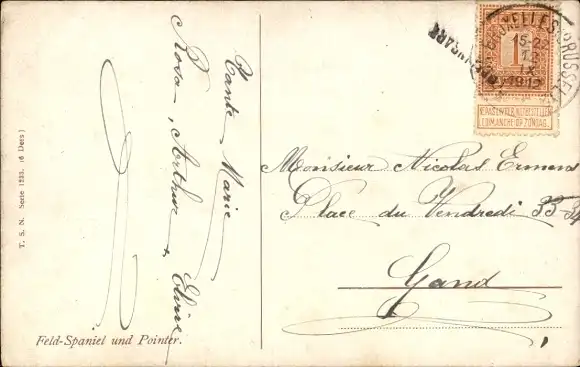 Tante Marie
Rosa, Arthur, Elvire
T. S. N. Serie 1233. (6 Dess)
Feld-Spaniel und Pointer.
BRUXELLES BRUSSEL
15-22
1912
1
NE PAS LIVRER LE DIMANCHE
NIET BESTELLEN OP ZONDAG
Monsieur Nicolas Ermens
Place du Vendredi 33-34
Gand,